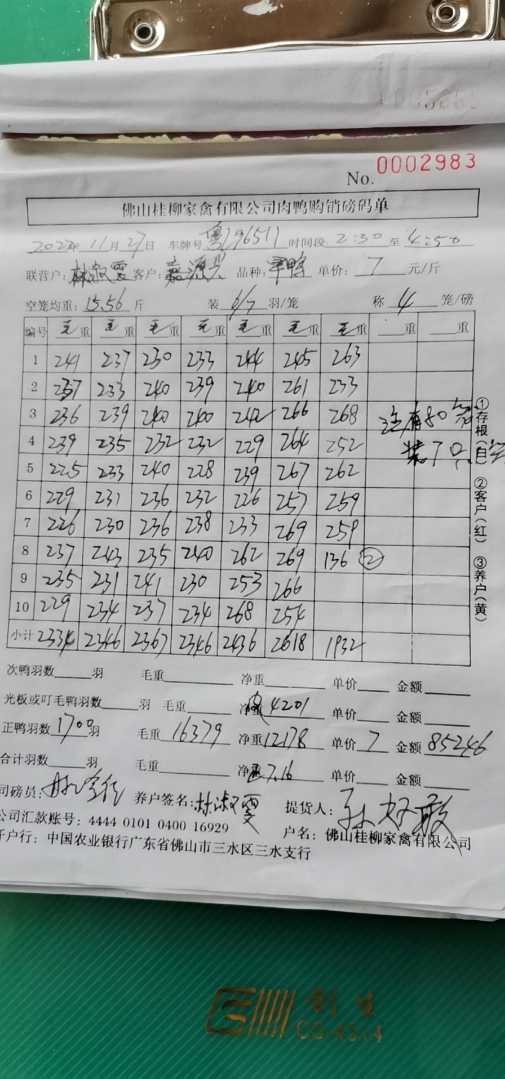 No. 0002983
佛山桂柳家禽有限公司肉鸭购销磅码单
2022年 11月 27日 车牌号 粤 时间段 2:30 至 4:50
联营户: 林淑雯 客户: 品种: 单价: 7 元/斤
空笼均重: 15.56 斤 装 6/7 羽/笼 称 4 笼/磅
编号 毛重 毛重 毛重 毛重 毛重 毛重 毛重 重 重
1 241 237 230 233 244 245 263
2 237 233 240 239 240 261 233
3 236 239 240 240 242 266 268 注有80笼
4 239 235 232 232 229 264 252 装7只
5 225 233 240 228 239 267 262
6 229 231 236 232 226 257 259
7 226 230 236 238 233 269 259
8 237 243 235 240 262 269 136 ②
9 235 231 241 230 253 266
10 229 234 237 234 268 254
小计 2334 2346 2367 2346 2436 2618 1932
①存根(白) ②客户(红) ③养户(黄)
次鸭羽数 羽 毛重 净重 单价 金额
光板或叮毛鸭羽数 羽 毛重 4201 单价 金额
正鸭羽数 1700 羽 毛重 16379 净重 12178 单价 7 金额 85246
合计羽数 羽 毛重 净重 7.16 单价 金额
司磅员: 养户签名: 林淑雯 提货人:
公司汇款账号: 4444 0101 0400 16929 户名: 佛山桂柳家禽有限公司
开户行: 中国农业银行广东省佛山市三水区三水支行